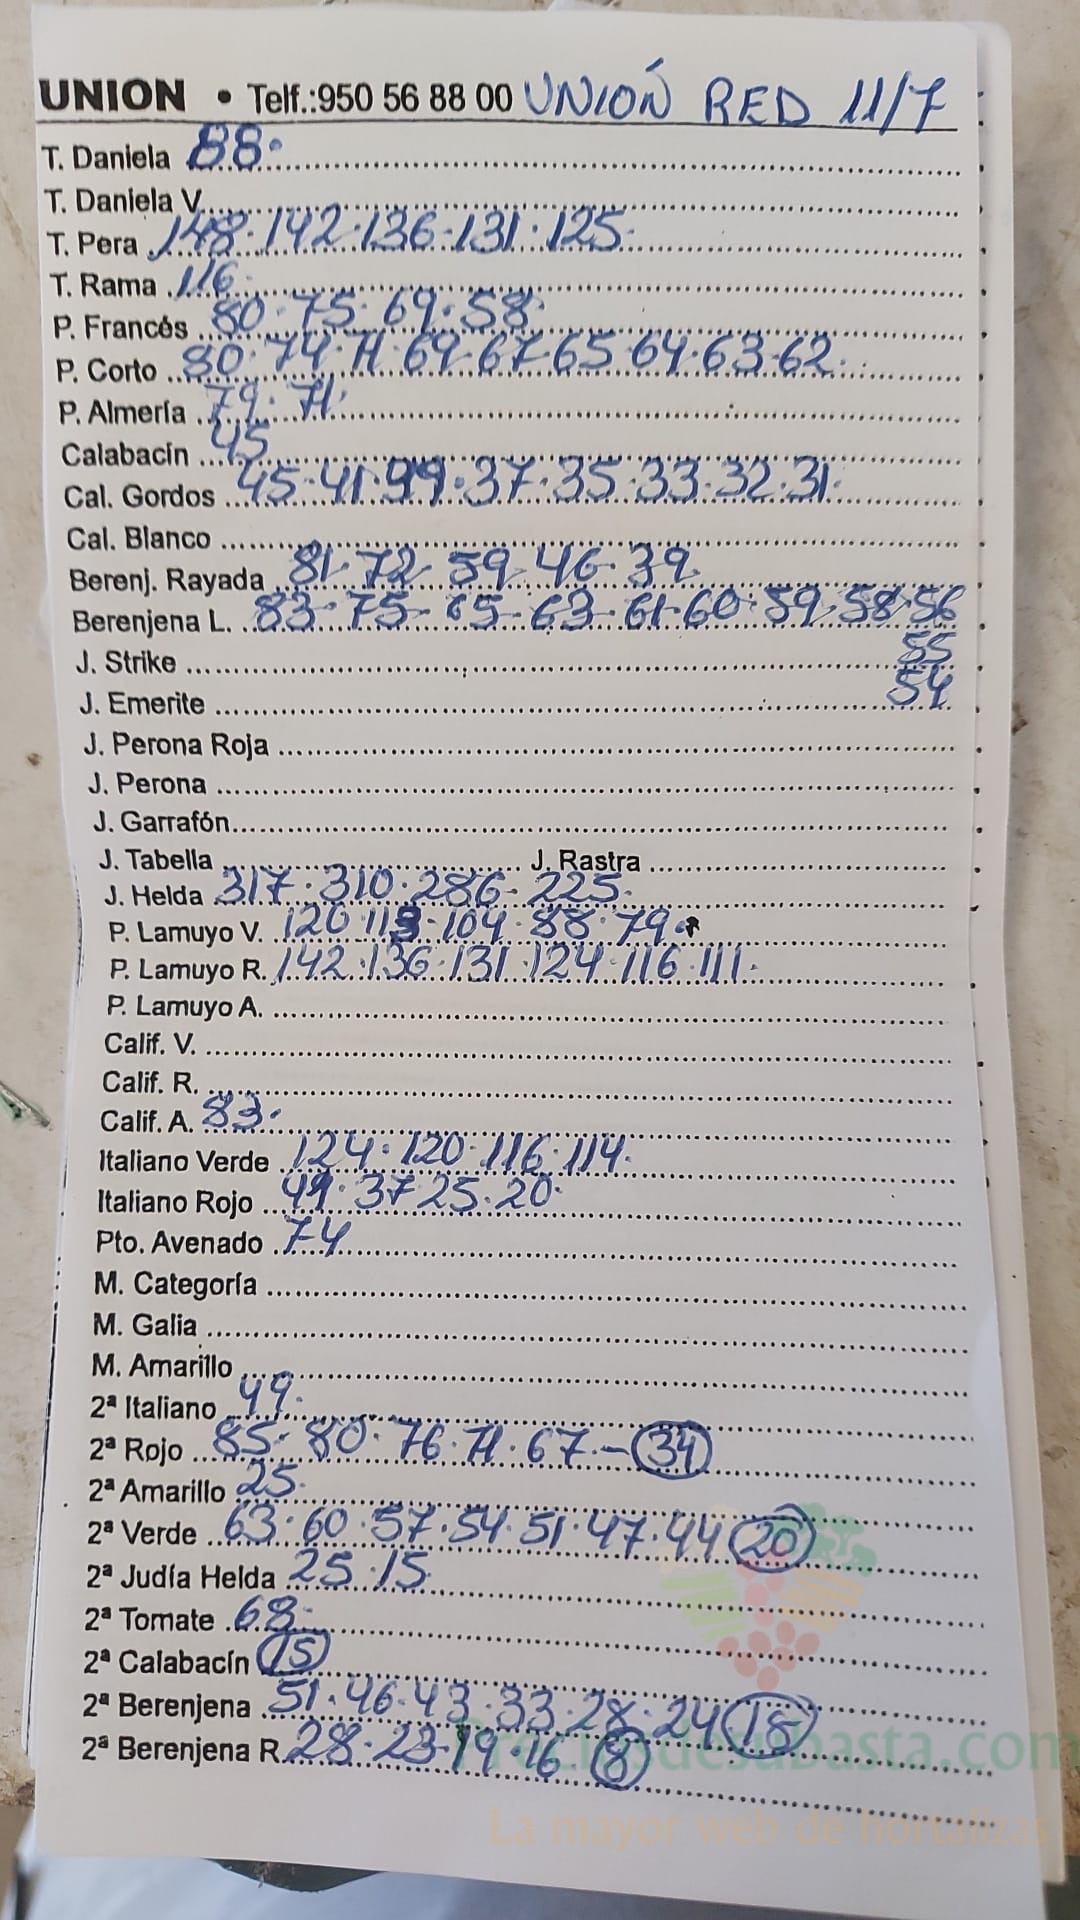 UNION • Telf.:950 56 88 00 UNIÓN RED 11/7
T. Daniela 88.
T. Daniela V.
T. Pera 148.142.136.131.125.
T. Rama 116.
P. Francés 80.75.69.58
P. Corto 80.74.71.69.67.65.64.63.62.
P. Almería 79.71.
Calabacín 45
Cal. Gordos 45.41.39.37.35.33.32.31.
Cal. Blanco
Berenj. Rayada 81.72.59.46.39.
Berenjena L. 83.75.65.63.61.60.59.58.56
J. Strike 55
J. Emerite 54
J. Perona Roja
J. Perona
J. Garrafón
J. Tabella J. Rastra
J. Helda 317.310.286.225.
P. Lamuyo V. 120 113.104.88.79.
P. Lamuyo R. 142.136.131.124.116.111.
P. Lamuyo A.
Calif. V.
Calif. R.
Calif. A. 83.
Italiano Verde 124.120.116.114.
Italiano Rojo 37.25.20.
Pto. Avenado 74
M. Categoría
M. Galia
M. Amarillo
2ª Italiano 49.
2ª Rojo 85.80.76.71.67.-34
2ª Amarillo 25.
2ª Verde 63.60.57.54.51.47.44 20
2ª Judía Helda 25.15.
2ª Tomate 68.
2ª Calabacín 15
2ª Berenjena 51.46.43.33.28.24 18
2ª Berenjena R. 28.23.19.16 8
Preciosdesubasta.com
La mayor web de hortalizas